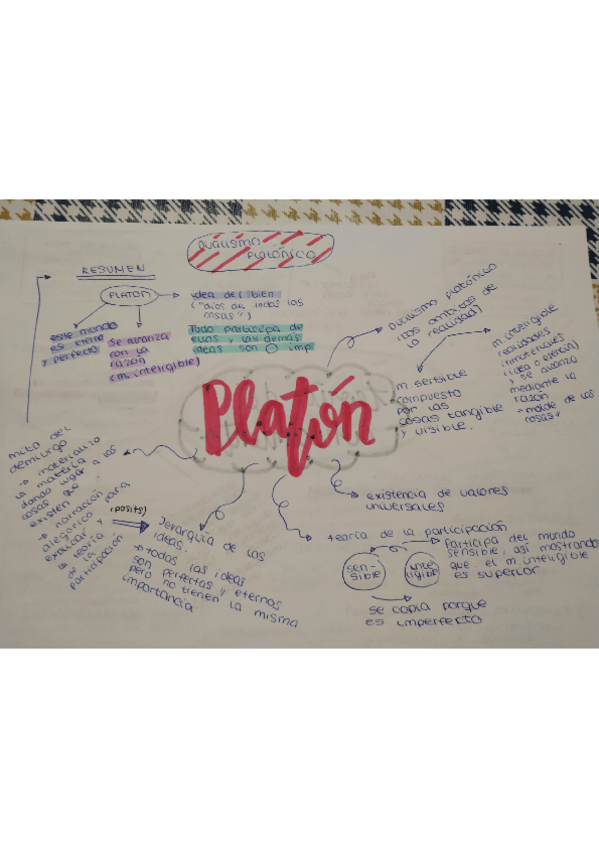 DUALISMO
PLATÓNICO
RESUMEN
PLATÓN
idea del bien
("dios de todas las
cosas")
este mundo
es eterno
y perfecto
se avanza
con la
razón
(m. inteligible)
Todo participa de
ellas y las demás
ideas son imp.
Platón
dualismo platónico
(dos ámbitos de
la realidad)
m. sensible
compuesto
por las
cosas tangible
y visible.
m. inteligible
realidades
inmateriales
(idea o esencia)
y se avanza
mediante la
razón
"molde de las
cosas"
existencia de valores
universales
teoría de la participación
sen-
sible
inte
ligible
Participa del mundo
sensible, así mostrando
que el m. inteligible
es superior
se copia porque
es imperfecto
Jerarquía de las
ideas.
→ todas las ideas
son perfectas y eternas
pero no tienen la misma
importancia.
mito del
demiurgo
→ materializo
la materia
dando lugar a las
cosas que
existen
→ narración
alegórica para
explicar
la teoría
de la
participación